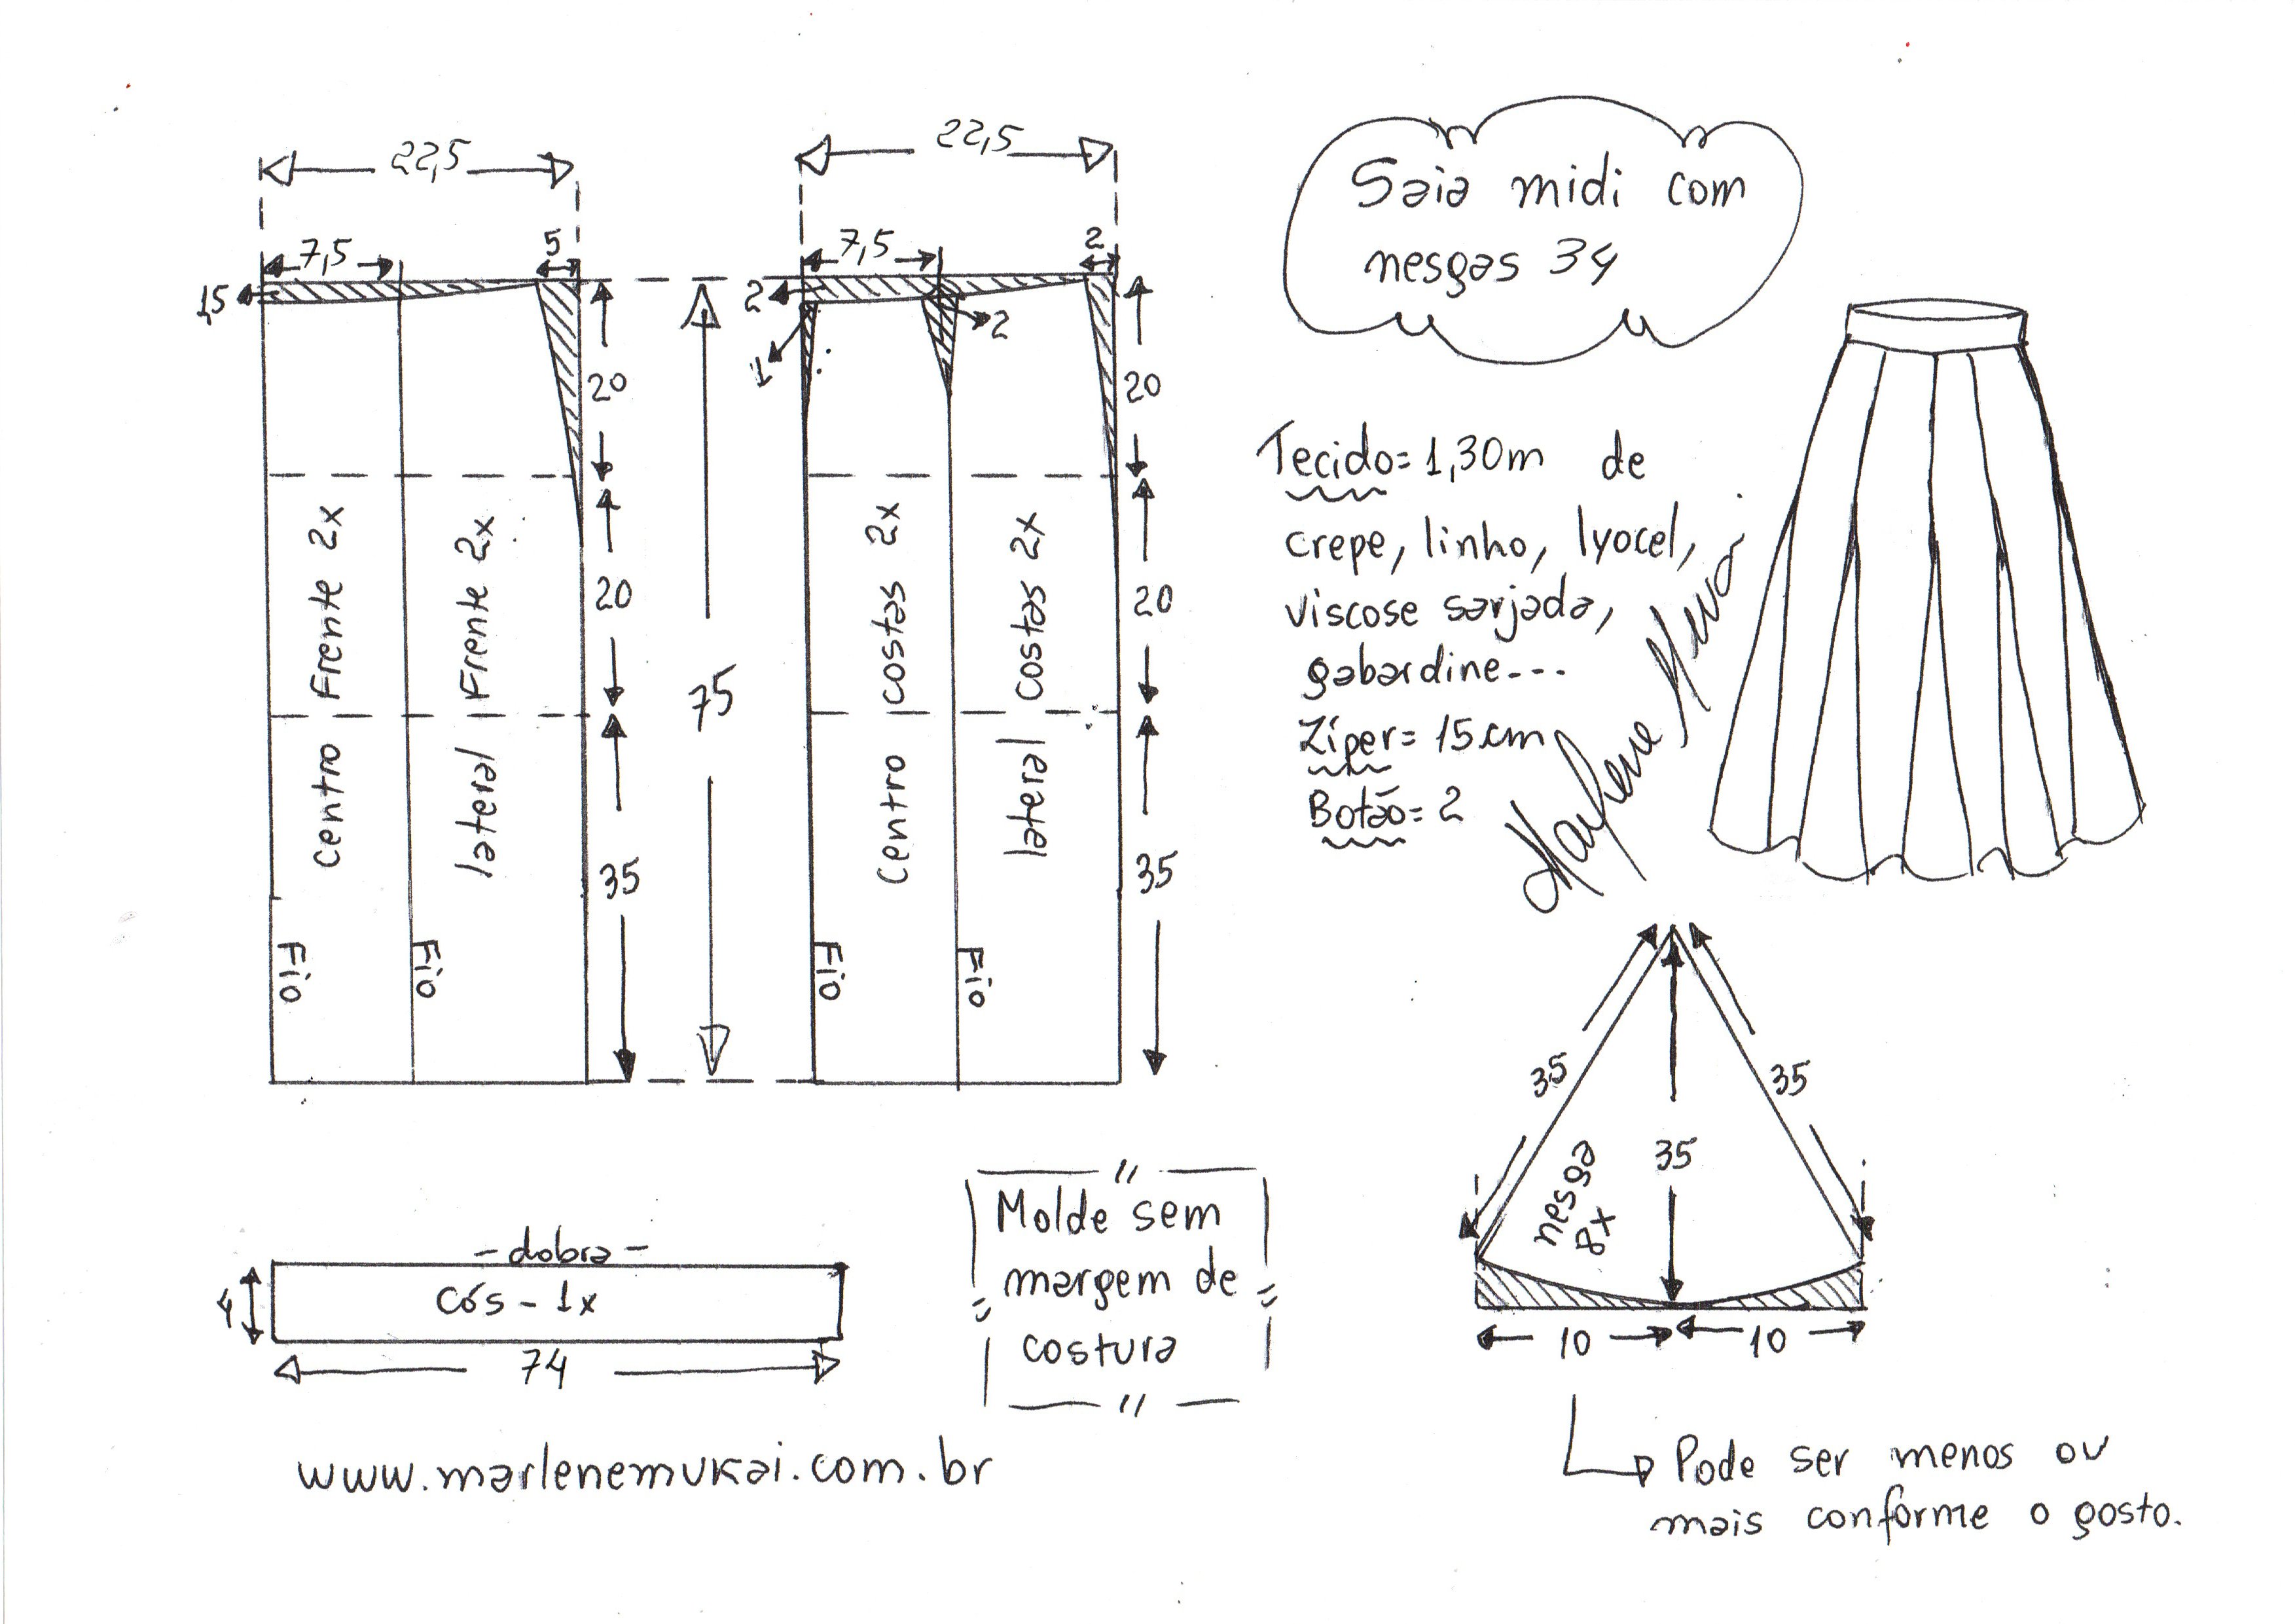 Saia midi com
nesgas 34
22,5
22,5
7,5
5
7,5
2
1,5
2
1
2
20
20
20
20
35
35
75
Centro Frente 2x
lateral Frente 2x
Centro costas 2x
lateral costas 2x
Fio
Fio
Fio
Fio
Tecido= 1,30m de
crepe, linho, lyocel,
viscose sarjada,
gabardine---
Zíper= 15cm
Botão= 2
Marlene Mukai
35
35
35
nesga
8x
10
10
Pode ser menos ou
mais conforme o gosto.
- dobra -
Cós - 1x
4
74
Molde sem
margem de
costura
www.marlenemukai.com.br